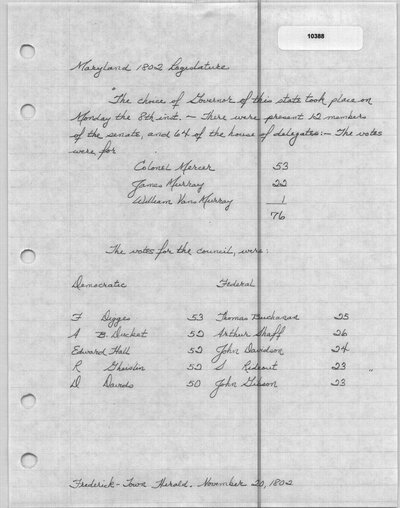 10388
Maryland 1802 Legislature
"The choice of Governor of this state took place on
Monday the 8th inst. — There were present 12 members
of the senate, and 64 of the house of delegates:— The votes
were for
Colonel Mercer 53
James Murray 22
William Vans Murray 1
76
The votes for the council, were:
Democratic Federal
F Digges 53 Thomas Buchanan 25
A B. Duckett 52 Arthur Shaff 26
Edward Hall 52 John Davidson 24
R Ghiselin 52 S Rideout 23 "
D Davids 50 John Gibson 23
Frederick-Town Herald. November 20, 1802